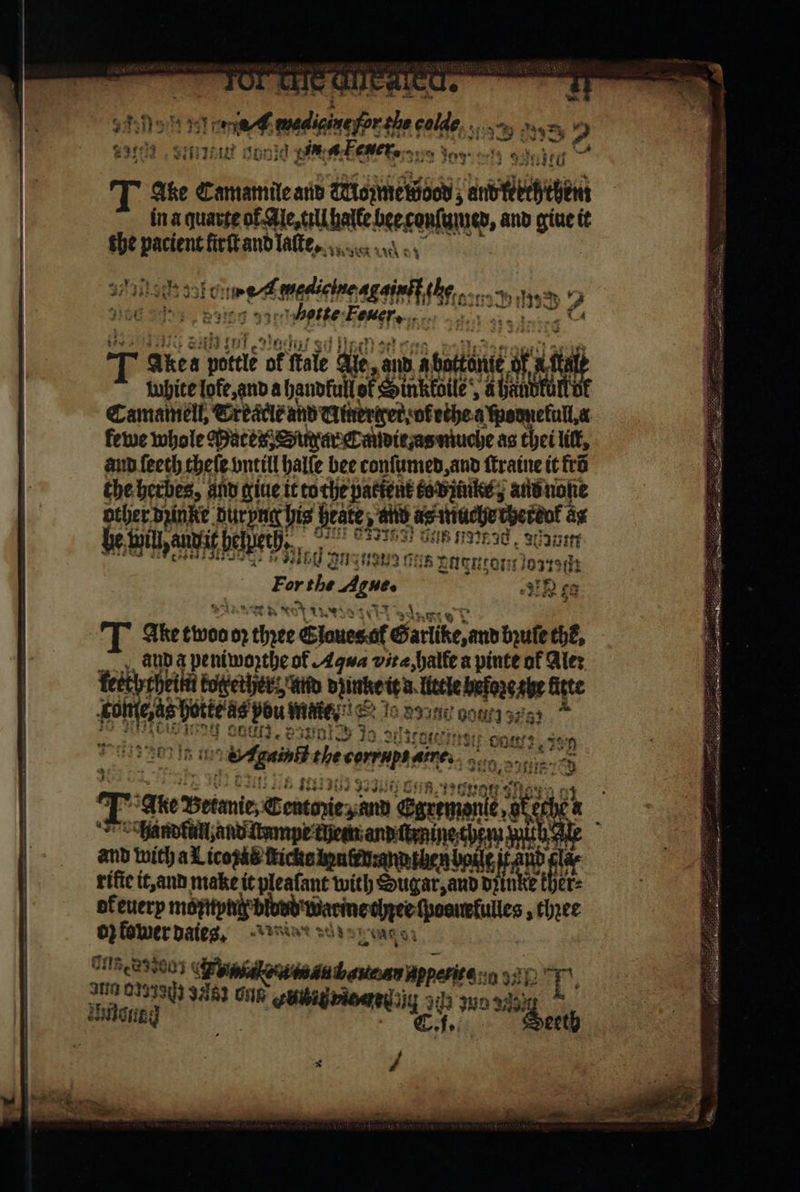 for the diseased.
A medicine for the colde
Feuer.
TAke Camamile and Wormewood; and seeth them
in a quarte of Ale, till halfe bee consumed, and giue it
the pacient first and laste.
A medicine against the
hotte Feuer.
TAke a pottle of stale Ale, and a bottome of a stale
white lofe, and a handfull of Sinkfoile, a handfull of
Camamell, Treacle and of ethe a sponefull, a
fewe whole Maces, Sugar Candie, as muche as thei list,
and seeth these vntill halfe bee consumed, and straine it frō
the herbes, and giue it to the pacient to drinke; and none
other drinke duryng his heate, and as muche thereof as
he will, and it helpeth.
For the Ague.
TAke twoo or three Cloues of Garlike, and bruse thē,
and a peniworthe of Aqua vitæ, halfe a pinte of Ale:
seeth theim together, and drinke it a little before the fitte
come, as hotte as you maie.
Against the corrupt aire.
TAke Betanie, Centorie, and Egremonie, of eche a
handfull, and stampe them and straine them with Ale
and with a Licoras sticke brused: and then boile it and cla-
rifie it, and make it pleasant with Sugar, and drinke ther-
of euery mornyng blood warme three sponefulles, three
or fower daies.
C.f. Seeth